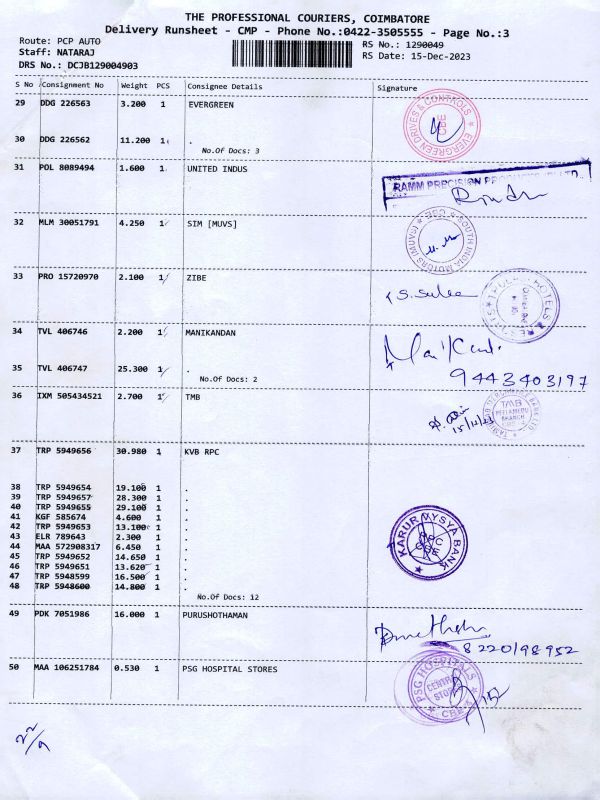 THE PROFESSIONAL COURIERS, COIMBATORE
Delivery Runsheet - CMP - Phone No.:0422-3505555 - Page No.:3
Route: PCP AUTO
RS No.: 1290049
Staff: NATARAJ
RS Date: 15-Dec-2023
DRS No.: DCJB129004903
S No Consignment No Weight PCS Consignee Details Signature
29 DDG 226563 3.200 1 EVERGREEN
EVERGREEN DRIVES & CONTROLS
CBE
30 DDG 226562 11.200 1 .
No.Of Docs: 3
31 POL 8089494 1.600 1 UNITED INDUS
RAMM PRECISION
32 MLM 30051791 4.250 1 SIM [MUVS]
SOUTH INDIA MOTORS (MUVS)
CBE
33 PRO 15720970 2.100 1 ZIBE
HOTELS
34 TVL 406746 2.200 1 MANIKANDAN
9443403197
35 TVL 406747 25.300 1 .
No.Of Docs: 2
36 IXM 505434521 2.700 1 TMB
TMB
PEELAMEDU
BRANCH
15/12/23
37 TRP 5949656 30.980 1 KVB RPC
38 TRP 5949654 19.100 1 .
39 TRP 5949657 28.300 1 .
40 TRP 5949655 29.100 1 .
41 KGF 585674 4.600 1 .
42 TRP 5949653 13.100 1 .
43 ELR 789643 2.300 1 .
44 MAA 572908317 6.450 1 .
45 TRP 5949652 14.650 1 .
46 TRP 5949651 13.620 1 .
47 TRP 5948599 16.500 1 .
48 TRP 5948600 14.800 1 .
KARUR VYSYA BANK
RPC
CBE
No.Of Docs: 12
49 PDK 7051986 16.000 1 PURUSHOTHAMAN
8220198952
50 MAA 106251784 0.530 1 PSG HOSPITAL STORES
PSG HOSPITALS
CENTRAL
STORES
22/9